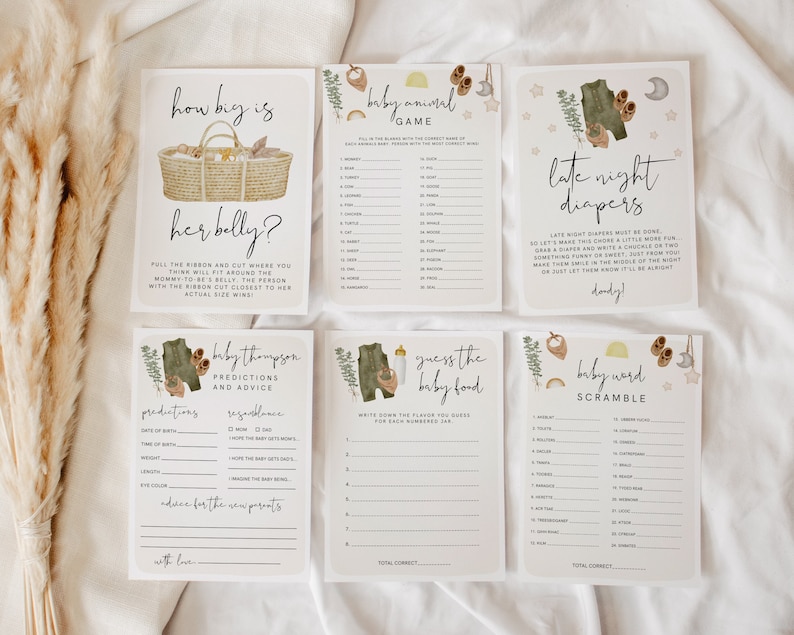 how big is
her belly?
PULL THE RIBBON AND CUT WHERE YOU
THINK WILL FIT AROUND THE
MOMMY-TO-BE'S BELLY. THE PERSON
WITH THE RIBBON CUT CLOSEST TO HER
ACTUAL SIZE WINS!
baby animal
GAME
FILL IN THE BLANKS WITH THE CORRECT NAME OF
EACH ANIMALS BABY. PERSON WITH THE MOST CORRECT WINS!
1. MONKEY
2. BEAR
3. TURKEY
4. COW
5. LEOPARD
6. FISH
7. CHICKEN
8. TURTLE
9. CAT
10. RABBIT
12. DEER
13. DOG
14. HORSE
15. KANGAROO
16. DUCK
17. PIG
18. GOAT
19. GOOSE
20. PANDA
21. LION
22. DOLPHIN
23. WHALE
24. MOOSE
25. FOX
26. ELEPHANT
27. PIGEON
28. RACOON
29. FROG
30. SEAL
late night
diapers
LATE NIGHT DIAPERS MUST BE DONE,
SO LET'S MAKE THIS CHORE A LITTLE MORE FUN...
GRAB A DIAPER AND WRITE A CHUCKLE OR TWO
SOMETHING FUNNY OR SWEET, JUST FROM YOU!
MAKE THEM SMILE IN THE MIDDLE OF THE NIGHT
OR JUST LET THEM KNOW IT'LL BE ALRIGHT
doody!
baby thompson
PREDICTIONS
AND ADVICE
predictions
DATE OF BIRTH
TIME OF BIRTH
WEIGHT
LENGTH
EYE COLOR
resemblance
MOM DAD
I HOPE THE BABY GETS MOM'S...
I HOPE THE BABY GETS DAD'S...
I IMAGINE THE BABY BEING...
advice for the new parents
with love
guess the
baby food
WRITE DOWN THE FLAVOR YOU GUESS
FOR EACH NUMBERED JAR.
1.
2.
3.
4.
5.
6.
7.
8.
TOTAL CORRECT
baby word
SCRAMBLE
4. DACLER
5. TAMPA
8. HERGTTE
12. KILM
17. BRALU
20. WEBNORN
21. LICOC
TOTAL CORRECT